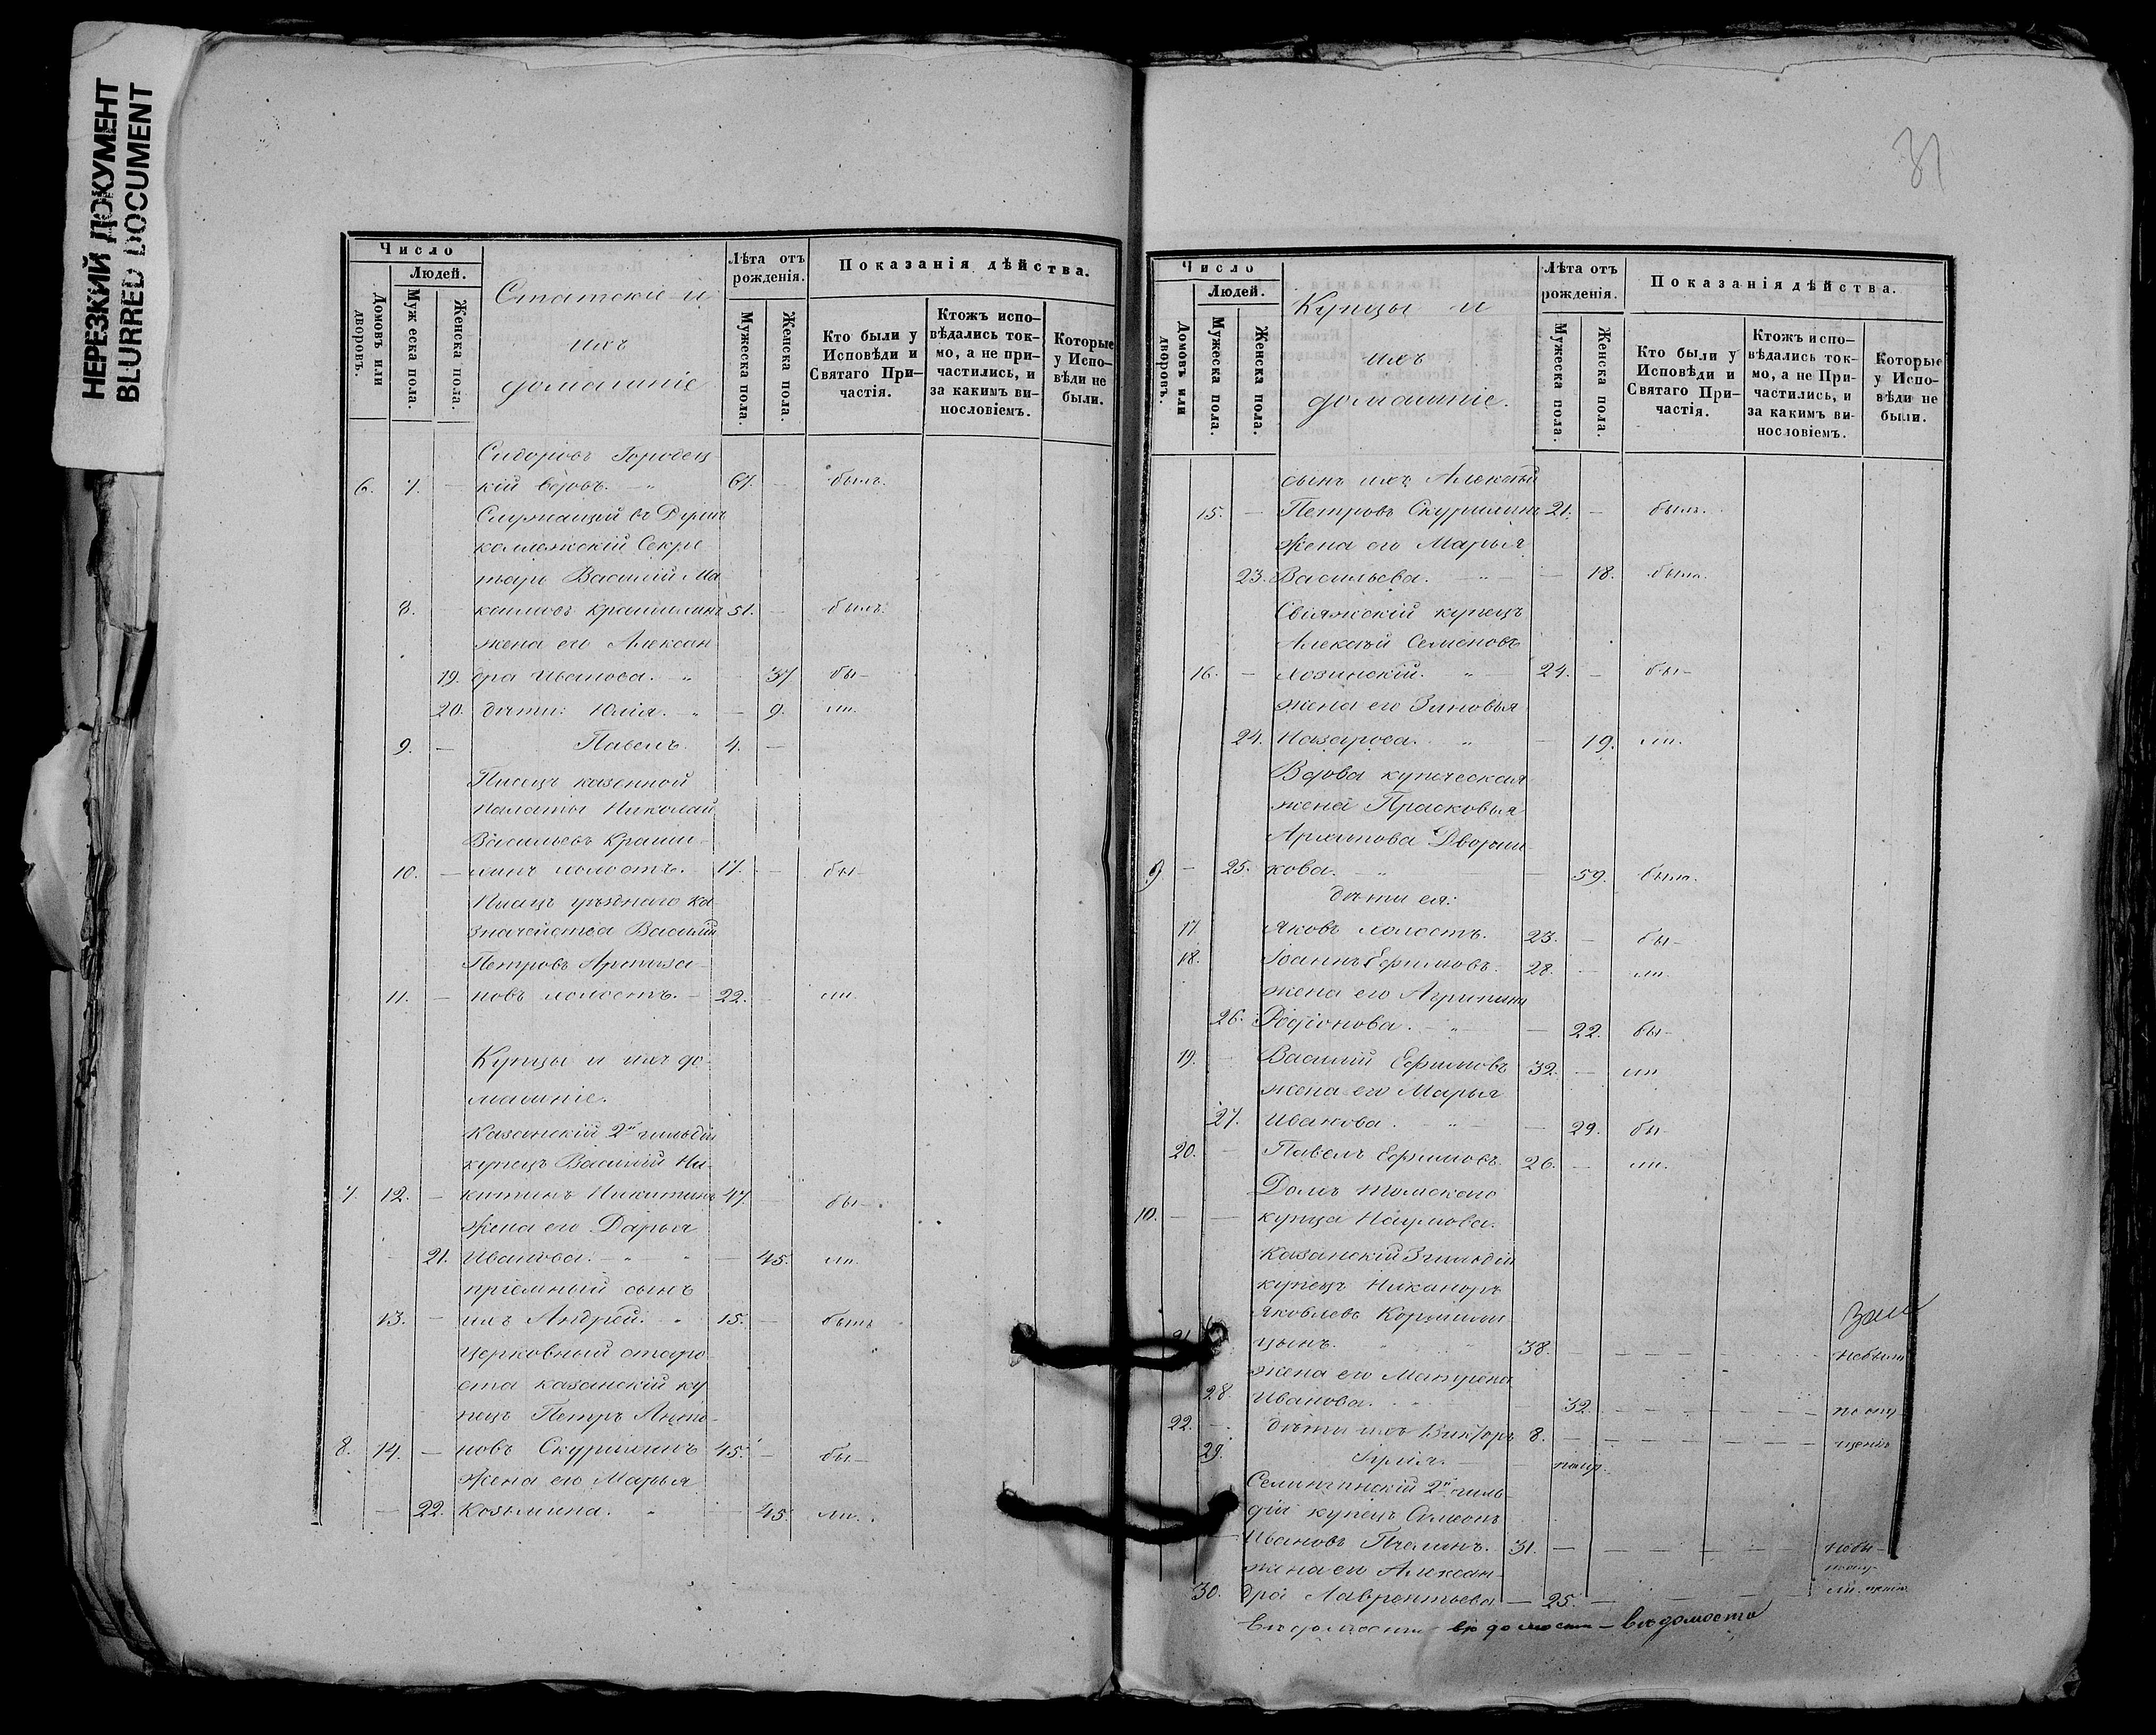 НЕРЕЗКИЙ ДОКУМЕНТ
BLURRED DOCUMENT
Число
Людей.
Домовъ или дворовъ.
Мужеска пола.
Женска пола.
Статскіе и
ихъ
домашніе
Лѣта отъ рожденія.
Мужеска пола
Женска пола.
Показанія дѣйства.
Кто были у Исповѣди и Святаго Причастія.
Ктожъ исповѣдались токмо, а не причастились, и за какимъ винословіемъ.
Которые у Исповѣди не были.
Сидоровъ Городец-
6. 7. — кій вдовъ. — " 67. — былъ.
Служащій въ Думѣ
коллежскій Секре
тарь Василій Ма
8. 51. — былъ.
жена его Алексан
19. дра Иванова. — " 37 бы—
20. дѣти: Юлія. — " — 9. ли.
9. — Павелъ. 4. —
Писецъ казенной
палаты Николай
Васильевъ Краши-
10. — линъ холостъ. 17. — бы—
Писецъ уѣзднаго ка
значейства Василій
Петровъ
11. — новъ холостъ. — 22. — ли.
Купцы и ихъ до-
машніе.
Казанскій 2й гильдіи
купецъ Василій Ни-
7. 12. — китинъ Никитинъ 47. — бы—
жена его Дарья
21. Иванова. — " — 45. ли.
пріемный сынъ
13. — ихъ Андрей. " 15. — былъ
церковный старо-
ста казанскій ку
пецъ Петръ Анто-
8. 14. — новъ Скурилинъ 45. — бы—
жена его Марья
— 22. Козьмина. " — 45. ли.
31
Число
Людей.
Домовъ или дворовъ.
Мужеска пола.
Женска пола.
Купцы и
ихъ
домашніе.
Лѣта отъ рожденія.
Мужеска пола.
Женска пола.
Показанія дѣйства.
Кто были у Исповѣди и Святаго Причастія.
Ктожъ исповѣдались токмо, а не Причастились, и за какимъ винословіемъ.
Которые у Исповѣди не были.
сынъ ихъ Алексѣй
15. — Петровъ Скурилинъ 21. — былъ.
жена его Марья
23. Васильева. — " — 18. была.
Свіяжскій купецъ
Алексѣй Семеновъ
16. — Лозинскій. " — 24. — бы—
жена его Зиновья
24. Назарова. " — 19. ли.
Вдова купеческая
жена Прасковья
Архипова Дворни-
9. — 25. кова. — " — 59. была.
дѣти ея:
17. Яковъ холостъ. 23. — бы—
18. Іоаннъ Ефимовъ. 28. — ли.
жена его Агрипина
26. Родіонова. — " — 22. бы—
19. — Василій Ефимовъ 32. — ли
жена его Марья
27. Иванова. — " — 29. бы
20. — Павелъ Ефимовъ. 26. — ли.
Домъ томскаго
10. — — купца Наумова.
Казанскій 3 гильдіи
купецъ Никаноръ
Яковлевъ
21. цынъ. 38. — небыли
жена его Матрена
28. Иванова. — 32. — по опу-
22. — дѣти ихъ Викторъ 8. — щенію
29.
Селингинскій 2й гиль-
діи купецъ Симеонъ
Ивановъ Пчелинъ. 31. — небы-
жена его Алексан-
30. дра Лаврентьева — 25. — ли
вѣдомости — вѣдомости — вѣдомости